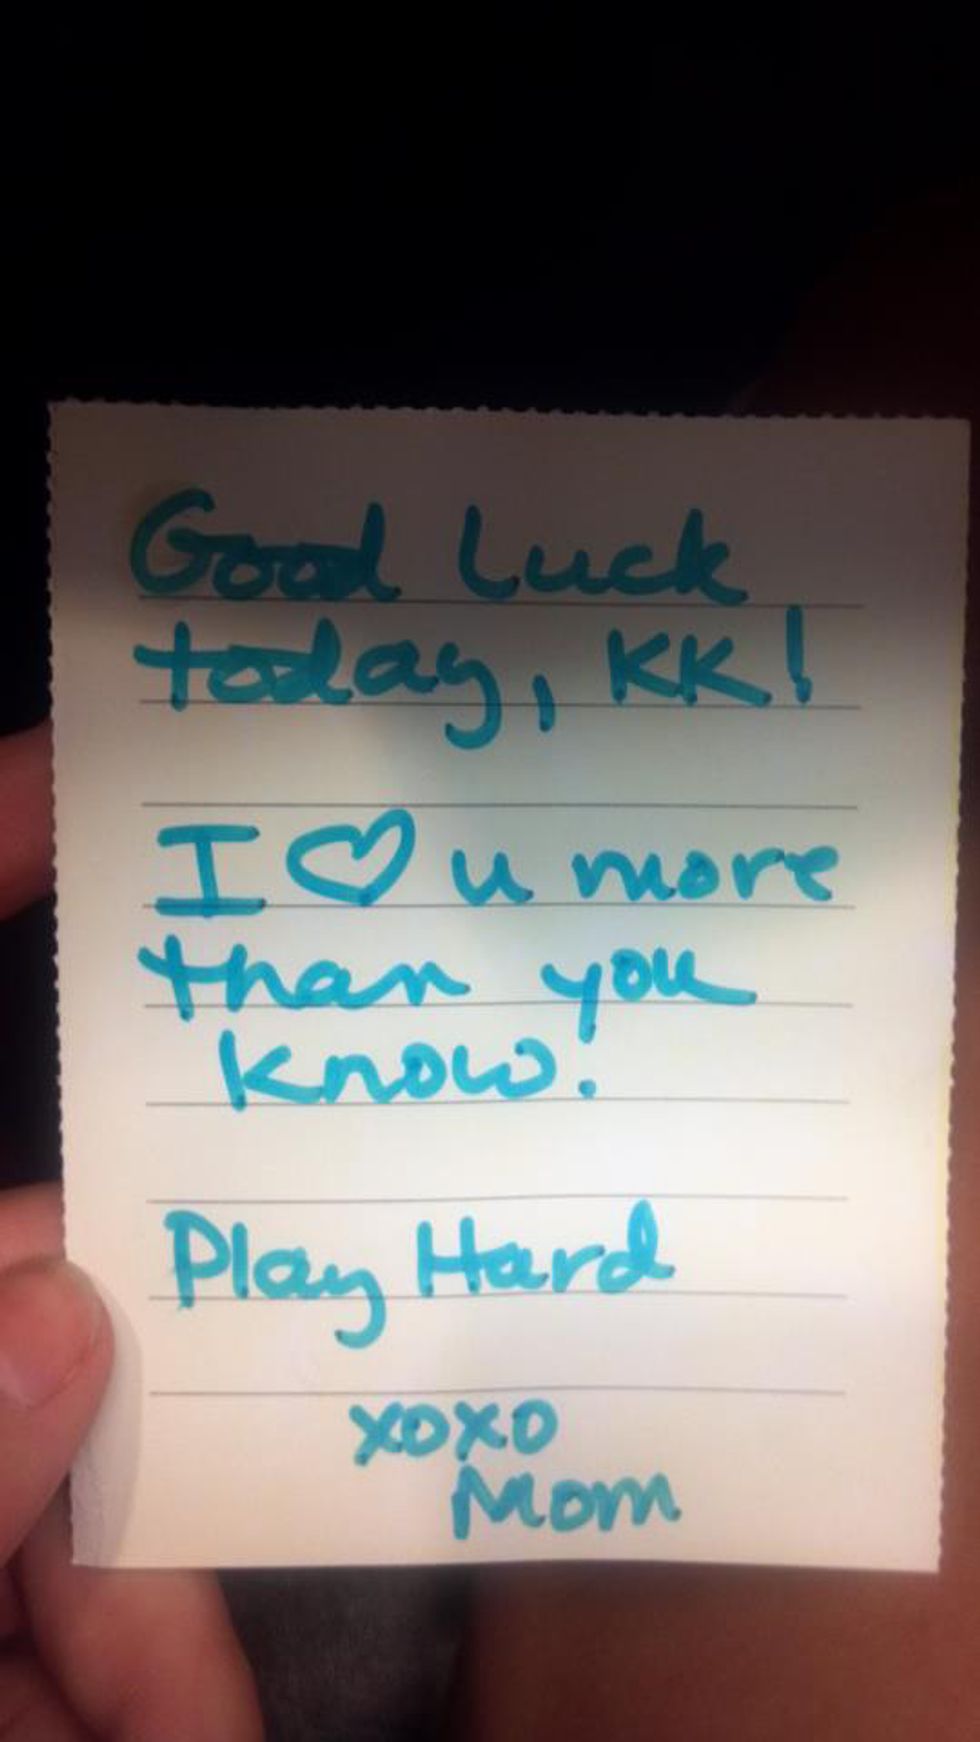 Good Luck
today, KK!
I ♡ u more
than you
know!
Play Hard
xoxo
Mom